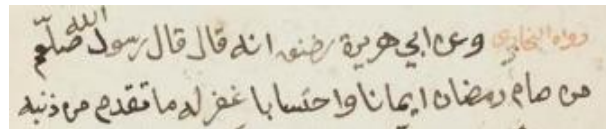 رواه البخاري وعن ابي هريرة رضنه انه قال قال رسول الله صلعم
من صام رمضان ايمانا واحتسابا غفر له ما تقدم من ذنبه